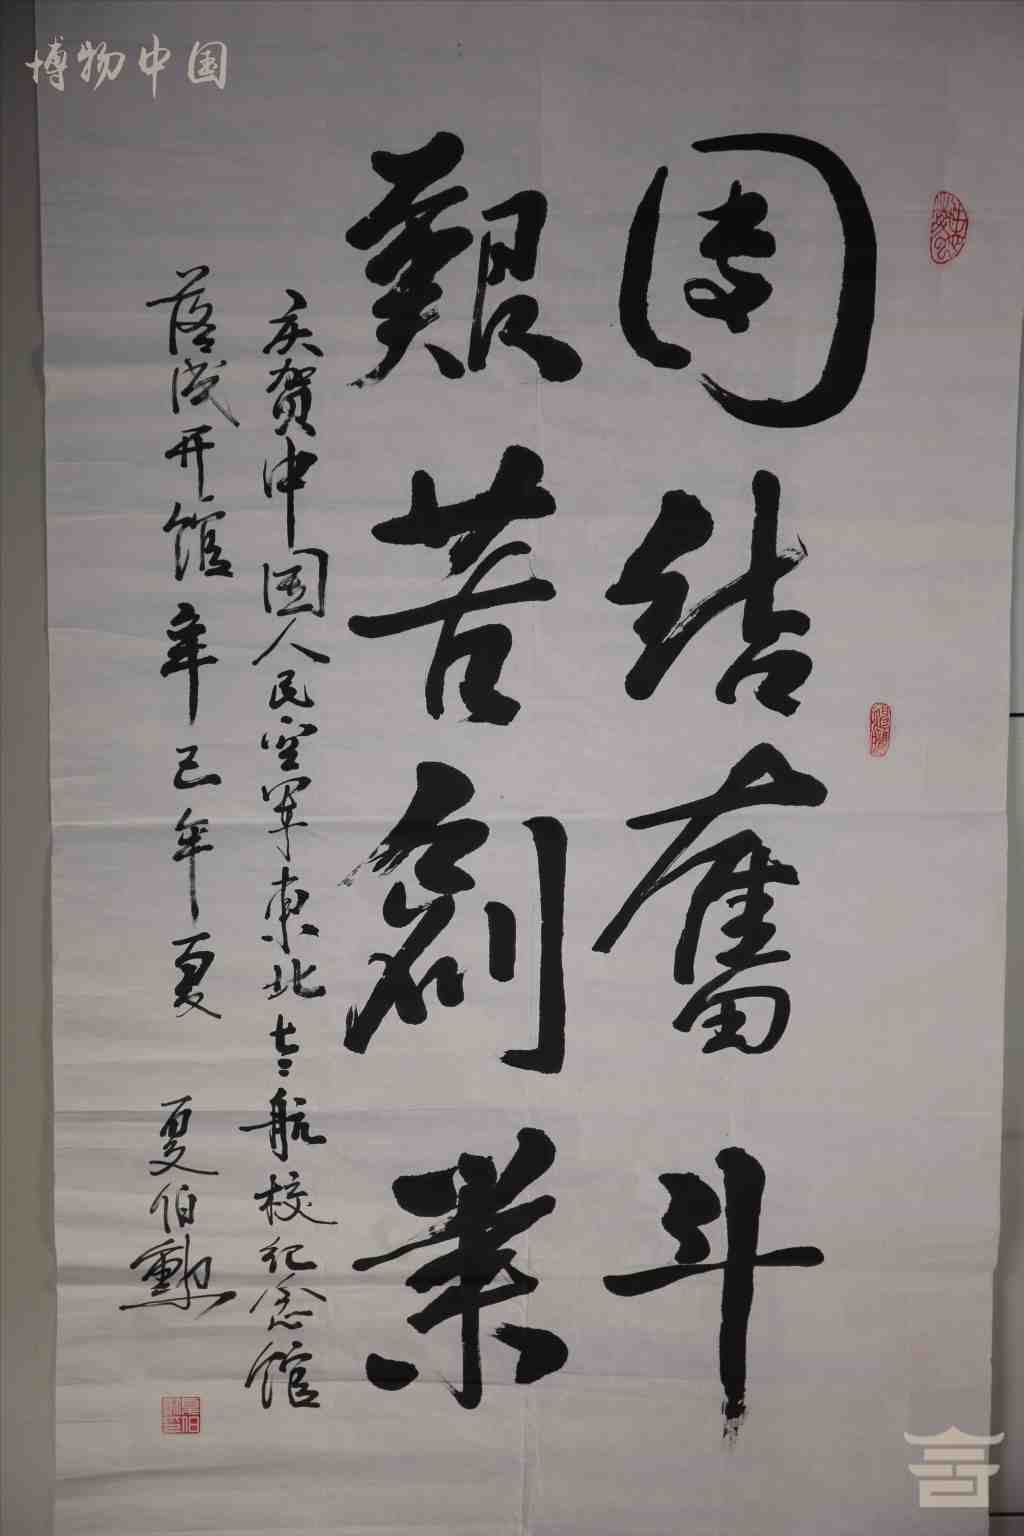 博物中国
團结奮斗
艱苦創業
庆贺中国人民空军东北老航校纪念馆
落成开馆 辛巳年夏 夏伯勲